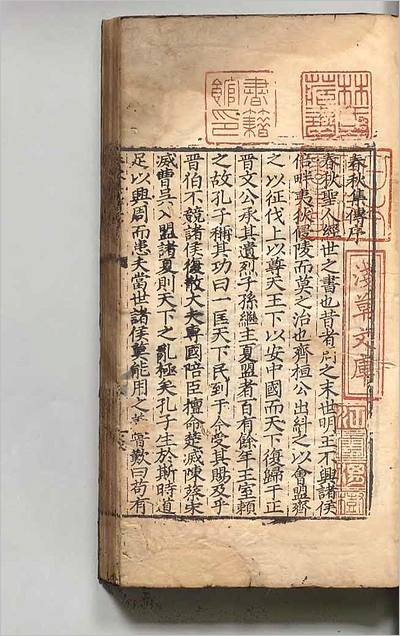 春秋集傳序
春秋聖人經世之書也昔者周之末世明王不興諸侯
倍畔夷狄侵陵而莫之治也齊桓公出糾之以會盟齊
之以征伐上以尊天王下以安中國而天下復歸于正
晉文公承其遺烈子孫繼主夏盟者百有餘年王室賴
之故孔子稱其功曰一匡天下民到于今受其賜及乎
晉伯不競諸侯復散大夫專國陪臣擅命楚滅陳蔡宋
滅曹吳入盟諸夏則天下之亂極矣孔子生於斯時道
足以興周而患夫當世諸侯莫能用之嘗歎曰苟有
林氏藏書
書籍館印
淺草文庫